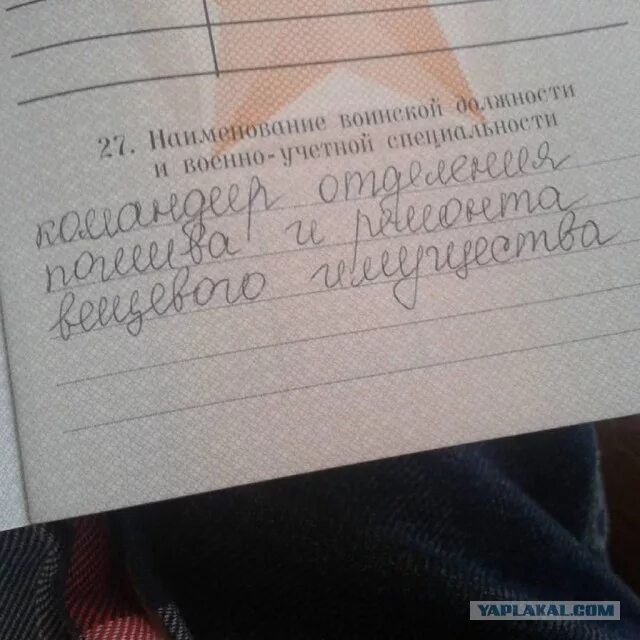 27. Наименование воинской должности
и военно-учетной специальности
командир отделения
пошива и ремонта
вещевого имущества
YAPLAKAL.COM